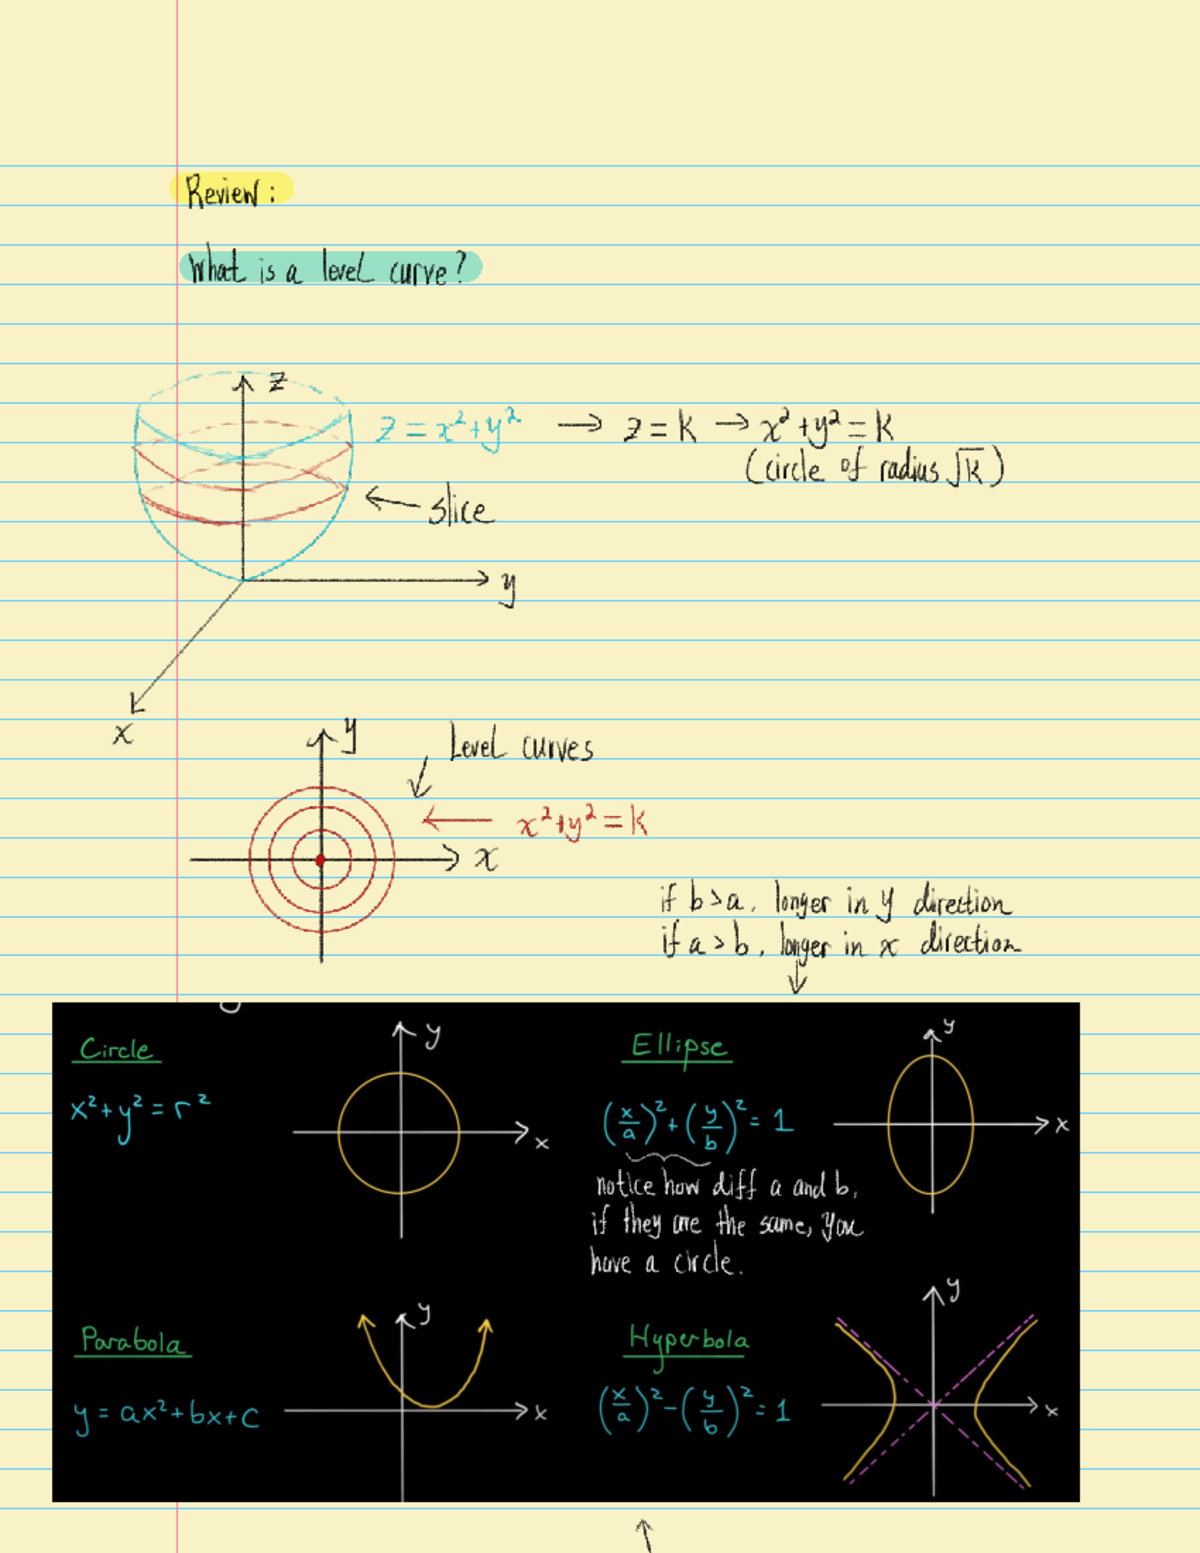 Review:
What is a level curve?
z
z = x²+y² → z = k → x²+y² = k
(circle of radius √k)
← slice
y
x
y
Level curves
← x²+y² = k
x
if b>a, longer in y direction
if a>b, longer in x direction
Circle
y
x²+y² = r²
x
Ellipse
y
(x/a)²+(y/b)² = 1
x
notice how diff a and b,
if they are the same, you
have a circle.
Parabola
y
y = ax²+bx+c
x
Hyperbola
y
(x/a)²-(y/b)² = 1
x